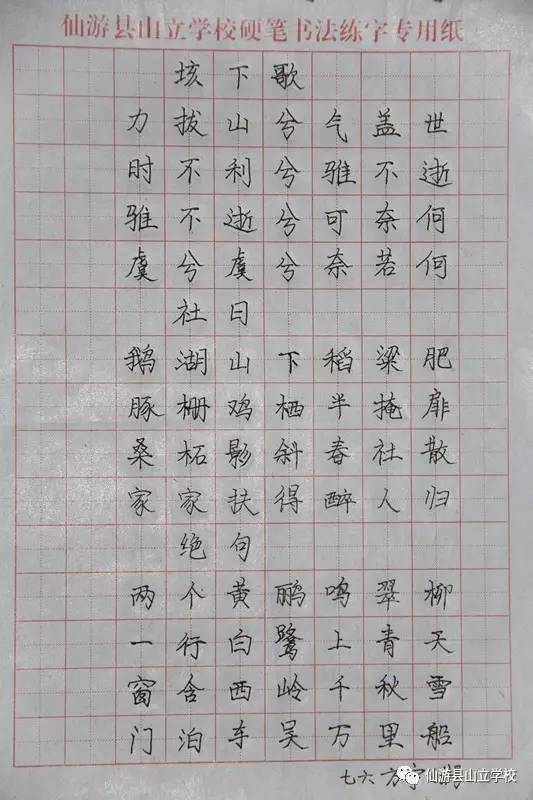 仙游县山立学校硬笔书法练字专用纸
垓下歌
力拔山兮气盖世
时不利兮骓不逝
骓不逝兮可奈何
虞兮虞兮奈若何
社日
鹅湖山下稻粱肥
豚栅鸡栖半掩扉
桑柘影斜春社散
家家扶得醉人归
绝句
两个黄鹂鸣翠柳
一行白鹭上青天
窗含西岭千秋雪
门泊东吴万里船
七六 方宇
仙游县山立学校